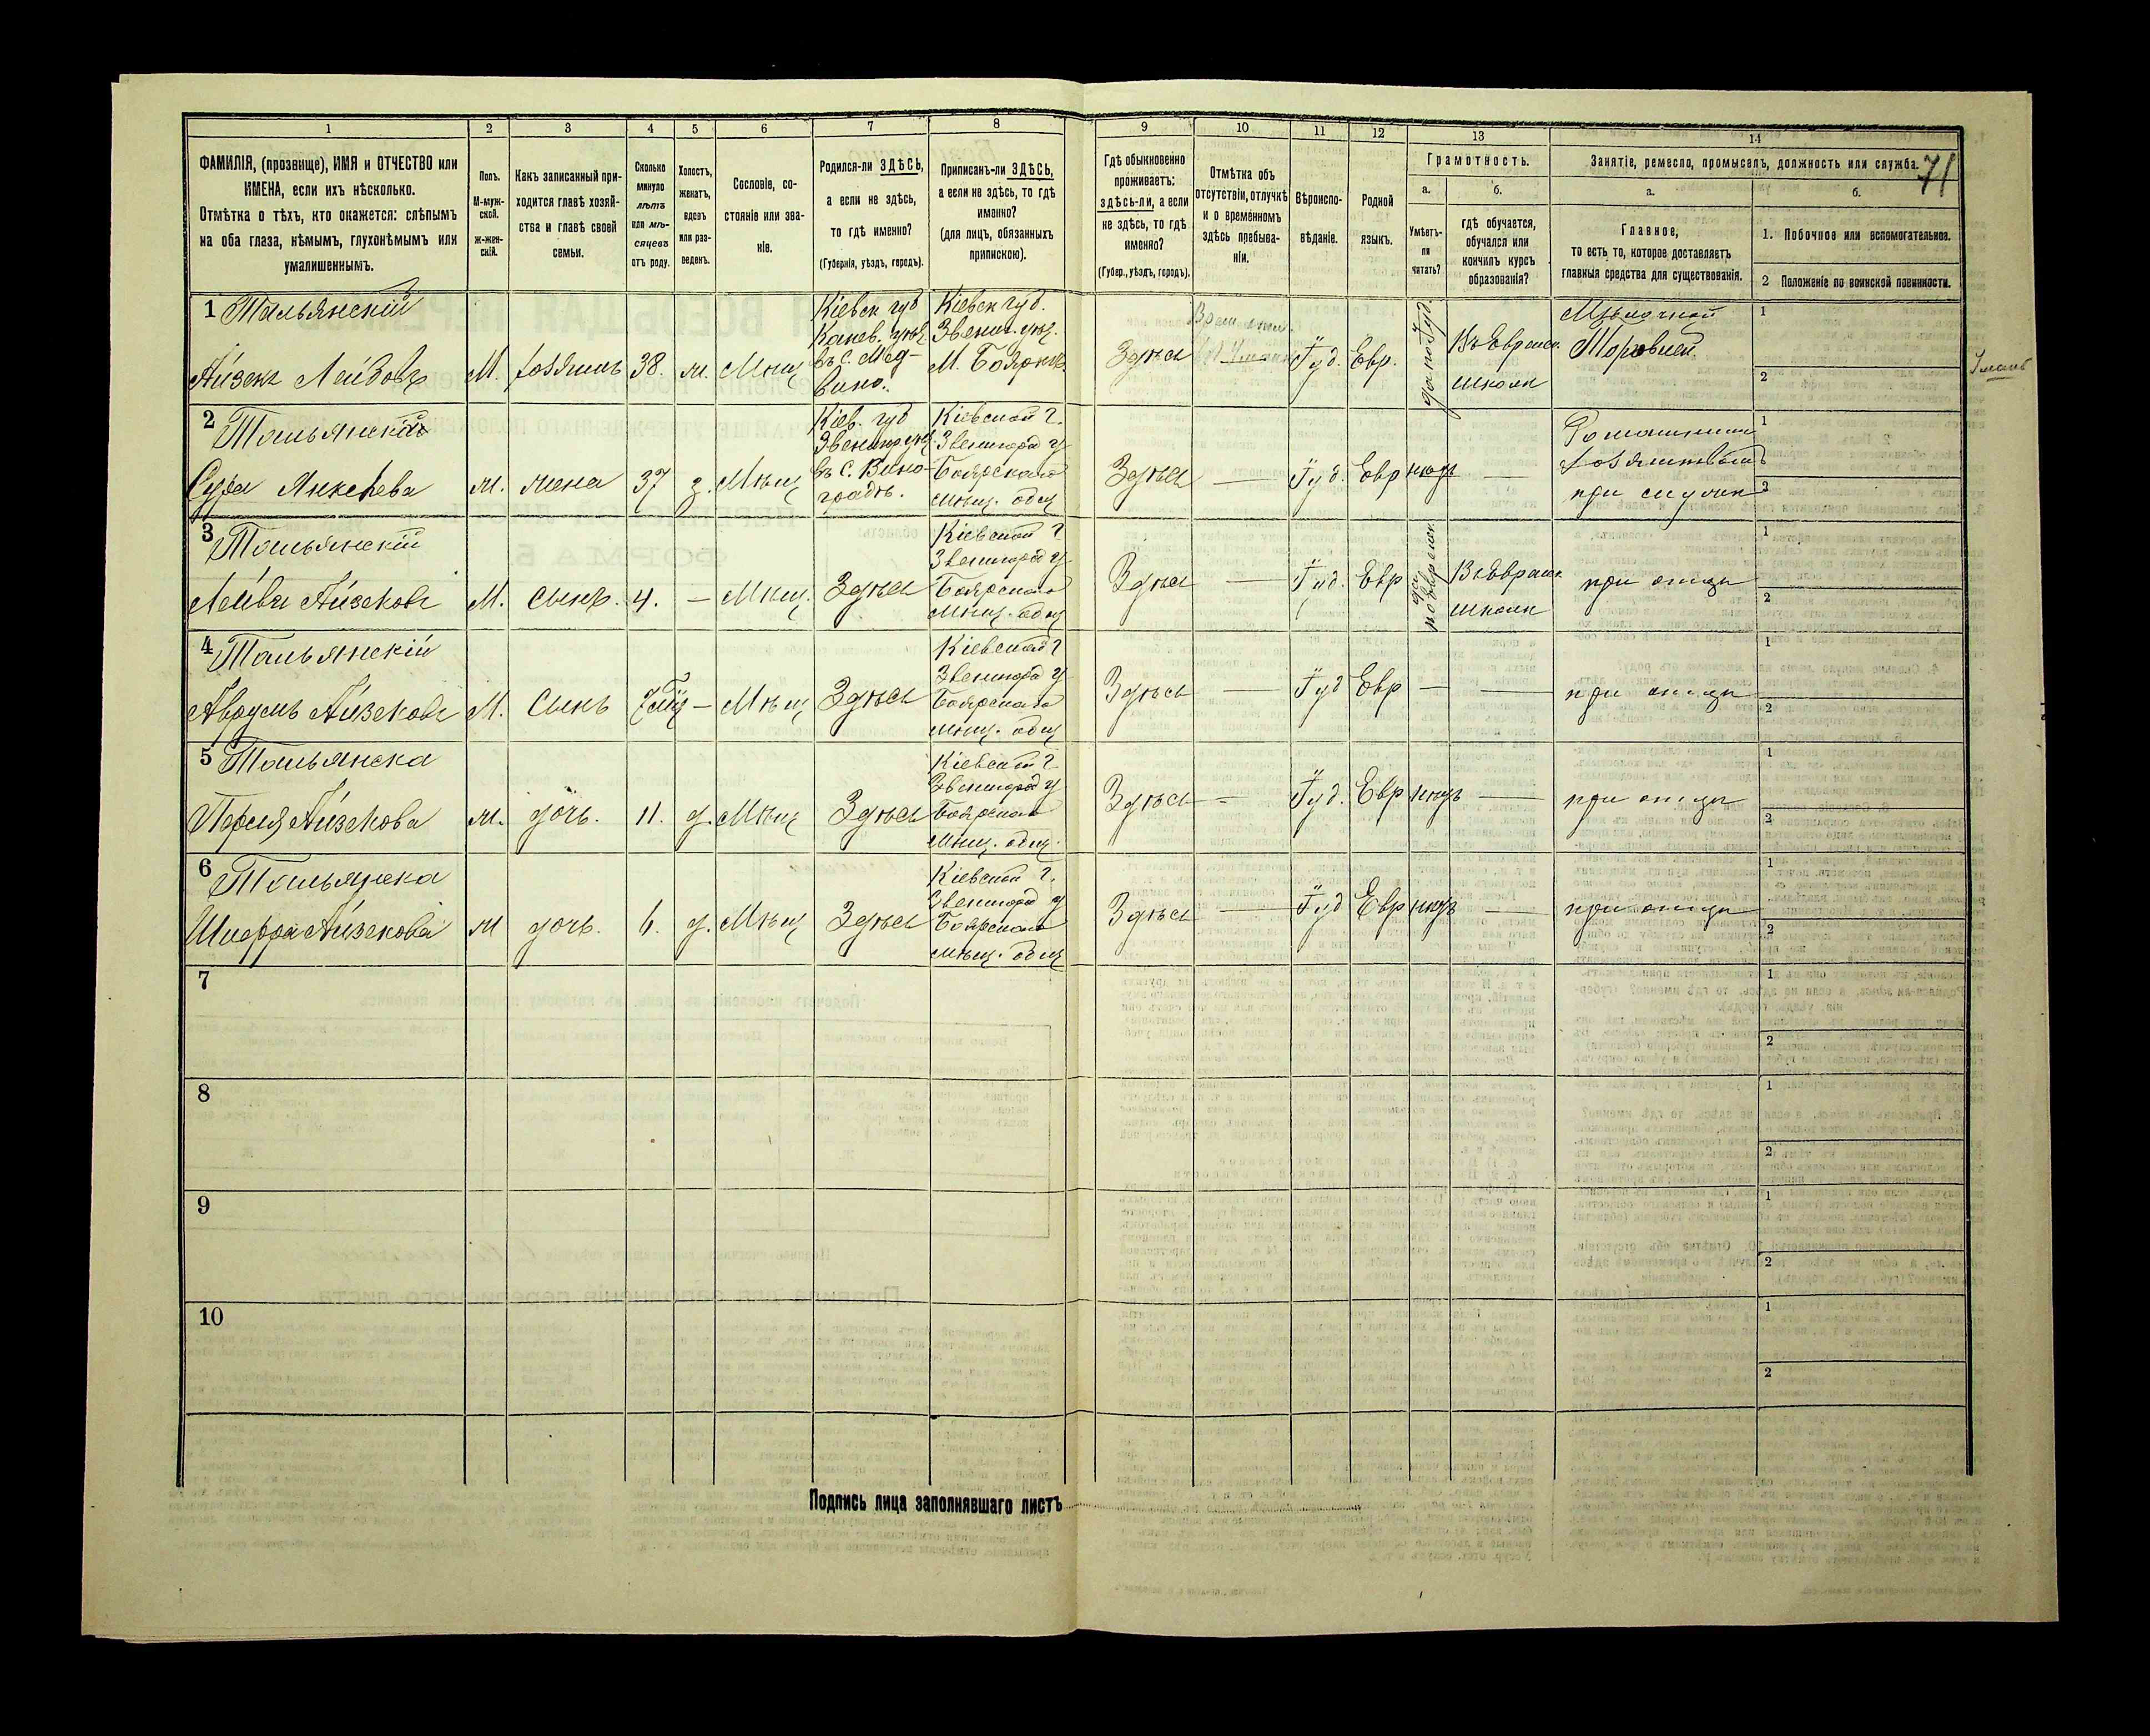 1 2 3 4 5 6 7 8 9 10 11 12 13 14
71
ФАМИЛІЯ, (прозвище), ИМЯ и ОТЧЕСТВО или
ИМЕНА, если ихъ нѣсколько.
Отмѣтка о тѣхъ, кто окажется: слѣпымъ
на оба глаза, нѣмымъ, глухонѣмымъ или
умалишеннымъ.
Полъ.
М-муж-
ской.
Ж-жен-
скій.
Какъ записанный при-
ходится главѣ хозяй-
ства и главѣ своей
семьи.
Сколько
минуло
лѣтъ
или мѣ-
сяцевъ
отъ роду.
Холостъ,
женатъ,
вдовъ
или раз-
веденъ.
Сословіе, со-
стояніе или зва-
ніе.
Родился-ли ЗДѢСЬ,
а если не здѣсь,
то гдѣ именно?
(Губернія, уѣздъ, городъ).
Приписанъ-ли ЗДѢСЬ,
а если не здѣсь, то гдѣ
именно?
(для лицъ, обязанныхъ
припискою).
Гдѣ обыкновенно
проживаетъ:
здѣсь-ли, а если
не здѣсь, то гдѣ
именно?
(Губер., уѣздъ, городъ).
Отмѣтка объ
отсутствіи, отлучкѣ
и о временномъ
здѣсь пребыва-
ніи.
Вѣроиспо-
вѣданіе.
Родной
языкъ.
Грамотность.
а.
Умѣетъ-
ли
читать?
б.
гдѣ обучается,
обучался или
кончилъ курсъ
образованія?
Занятіе, ремесло, промыселъ, должность или служба.
а.
Главное,
то есть то, которое доставляетъ
главныя средства для существованія.
б.
1. Побочное или вспомогательное.
2 Положеніе по воинской повинности.
1 Тальянскій
Айзекъ Лейбовъ
М.
хозяинъ
38.
ж.
Мѣщ
Кіевск губ
Канев. уѣз
въ с. Мед-
вино.
Кіевск губ.
Звениг. уѣз.
М. Боярка
Здѣсь
—
Іуд.
Евр.
да по Іуд.
Въ Евраиск.
школи
Мѣлочной
Торовлей
1
2
Умань
2 Тальянская
Сура Янкелева
ж.
жена
37
з.
Мѣщ
Кіев. губ
Звенигор уѣз
въ с. Вино-
градъ.
Кіевской г.
Звенигород у
Боярскаго
мѣщ. общ
Здѣсь
—
Іуд.
Евр
нѣтъ
—
хозяйством
при мужѣ
1
2
3 Тальянскій
Лейба Айзековъ
М.
сынъ.
4.
—
Мѣщ.
Здѣсь
Кіевской г
Звенигород у
Боярскаго
мѣщ. общ
Здѣсь
—
Іуд.
Евр
да
по Еврейск.
Въ Евраиск.
школи
при отцѣ
1
2
4 Тальянскій
Аврумъ Айзековъ
М.
Сынъ
—
Мѣщ
Здѣсь
Кіевской г
Звенигород у
Боярскаго
мѣщ. общ
Здѣсь
—
Іуд
Евр
—
—
при отцѣ
1
2
5 Тальянска
Песя Айзекова
ж.
дочь.
11.
д.
Мѣщ
Здѣсь
Кіевской г
Звенигород у
Боярскаго
мѣщ. общ.
Здѣсь
—
Іуд.
Евр
нѣтъ
—
при отцѣ
1
2
6 Тальянска
Шифра Айзекова
ж
дочь.
6.
д.
Мѣщ
Здѣсь
Кіевской г.
Звенигород у
Боярскаго
мѣщ. общ
Здѣсь
—
Іуд
Евр
нѣтъ
—
при отцѣ
1
2
7
1
2
8
1
2
9
1
2
10
1
2
Подпись лица заполнявшаго листъ